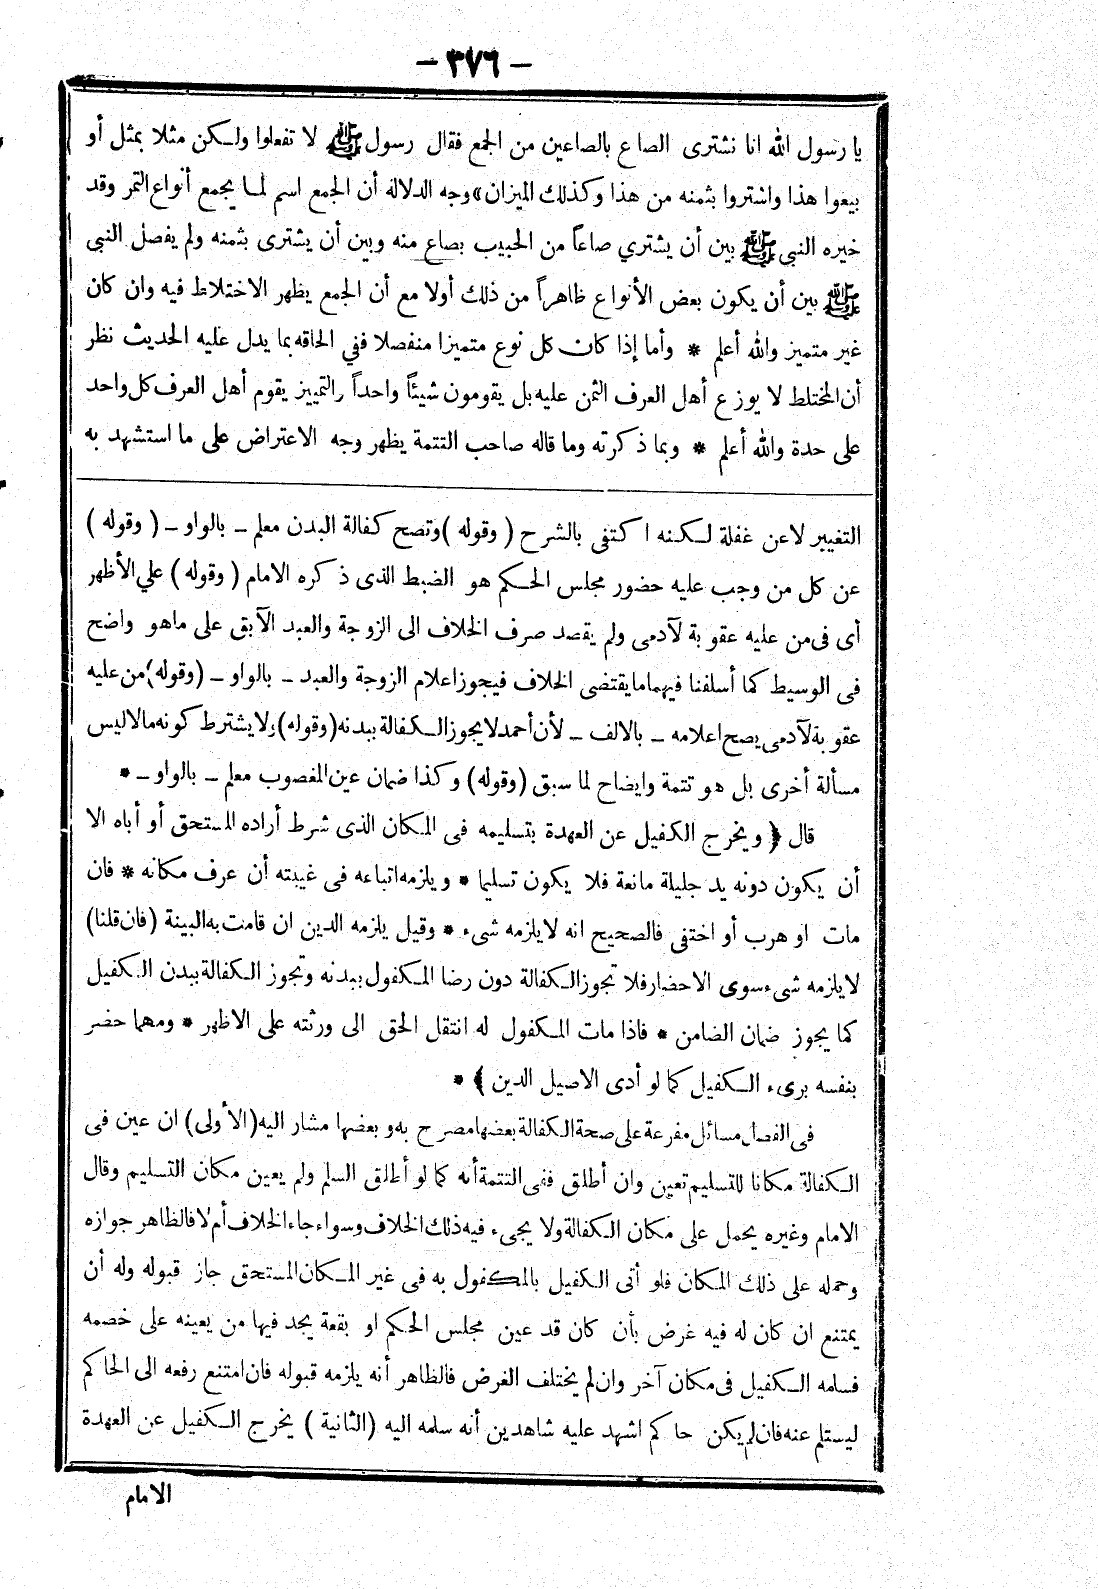 - ٣٧٦ -
يا رسول الله انا نشترى الصاع بالصاعين من الجمع فقال رسول ﷺ لا تفعلوا ولكن مثلا بمثل أو
بيعوا هذا واشتروا بثمنه من هذا وكذلك الميزان» وجه الدلالة أن الجمع اسم لما يجمع أنواع التمر وقد
خيره النبى ﷺ بين أن يشتري صاعاً من الجنيب بصاع منه وبين أن يشترى بثمنه ولم يفصل النبى
ﷺ بين أن يكون بعض الأنواع ظاهراً من ذلك أولا مع أن الجمع يظهر الاختلاط فيه وان كان
غير متميز والله أعلم * وأما إذا كان كل نوع متميزا منفصلا ففي الحاقه بما يدل عليه الحديث نظر
أن المختلط لا يوزع أهل العرف الثمن عليه بل يقومون شيئاً واحداً والتمييز يقوم أهل العرف كل واحد
على حدة والله أعلم * وبما ذكرته وما قاله صاحب التتمة يظهر وجه الاعتراض على ما استشهد به
التغيير لاعن غفلة لكنه اكتفى بالشرح (وقوله) وتصح كفالة البدن معلم – بالواو – (وقوله)
عن كل من وجب عليه حضور مجلس الحكم هو الضبط الذى ذكره الامام (وقوله) علي الأظهر
أى فى من عليه عقوبة لآدمى ولم يقصد صرف الخلاف الى الزوجة والعبد الآبق على ماهو واضح
فى الوسيط كما أسلفنا فيهما ما يقتضى الخلاف فيجوز اعلام الزوجة والعبد – بالواو – (وقوله) من عليه
عقوبة لآدمى يصح اعلامه – بالالف – لأن أحمد لا يجوز الكفالة ببدنه (وقوله) ولا يشترط كونه مالا ليس
مسألة أخرى بل هو تتمة وايضاح لما سبق (وقوله) وكذا ضمان عين المغصوب معلم – بالواو – *
قال ﴿ ويخرج الكفيل عن العهدة بتسليمه فى المكان الذى شرط أراده المستحق أو أباه الا
أن يكون دونه يد جليلة مانعة فلا يكون تسليما * ويلزمه اتباعه فى غيبته أن عرف مكانه * فان
مات او هرب أو اختفى فالصحيح انه لا يلزمه شىء * وقيل يلزمه الدين ان قامت به البينة (فان قلنا)
لا يلزمه شىء سوى الاحضار فلا تجوز الكفالة دون رضا المكفول ببدنه وتجوز الكفالة ببدن الكفيل
كما يجوز ضمان الضامن * فاذا مات المكفول له انتقل الحق الى ورثته على الاظهر * ومهما حضر
بنفسه برىء الكفيل كما لو أدى الاصيل الدين ﴾ *
فى الفصل مسائل مفرعة على صحة الكفالة بعضها مصرح به وبعضها مشار اليه (الأولى) ان عين فى
الكفالة مكانا للتسليم تعين وان أطلق ففى التتمة أنه كما لو أطلق السلم ولم يعين مكان التسليم وقال
الامام وغيره يحمل على مكان الكفالة ولا يجىء فيه ذلك الخلاف وسواء جاء الخلاف أم لا فالظاهر جوازه
وحمله على ذلك المكان فلو أتى الكفيل بالمكفول به فى غير المكان المستحق جاز قبوله وله أن
يمتنع ان كان له فيه غرض بأن كان قد عين مجلس الحكم او بقعة يجد فيها من يعينه على خصمه
فسلمه الكفيل فى مكان آخر وان لم يختلف الغرض فالظاهر أنه يلزمه قبوله فان امتنع رفعه الى الحاكم
ليستلم عنه فان لم يكن حاكم اشهد عليه شاهدين أنه سلمه اليه (الثانية) يخرج الكفيل عن العهدة
الامام